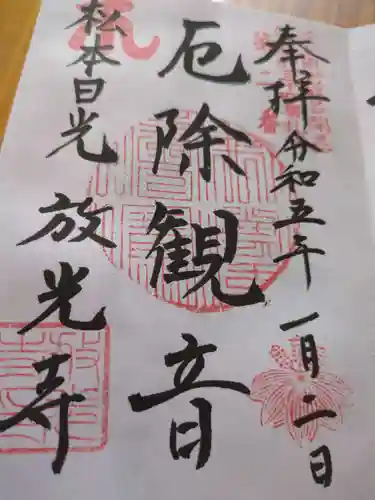 奉拝 令和五年 一月二日
厄除観音
松本日光 放光寿